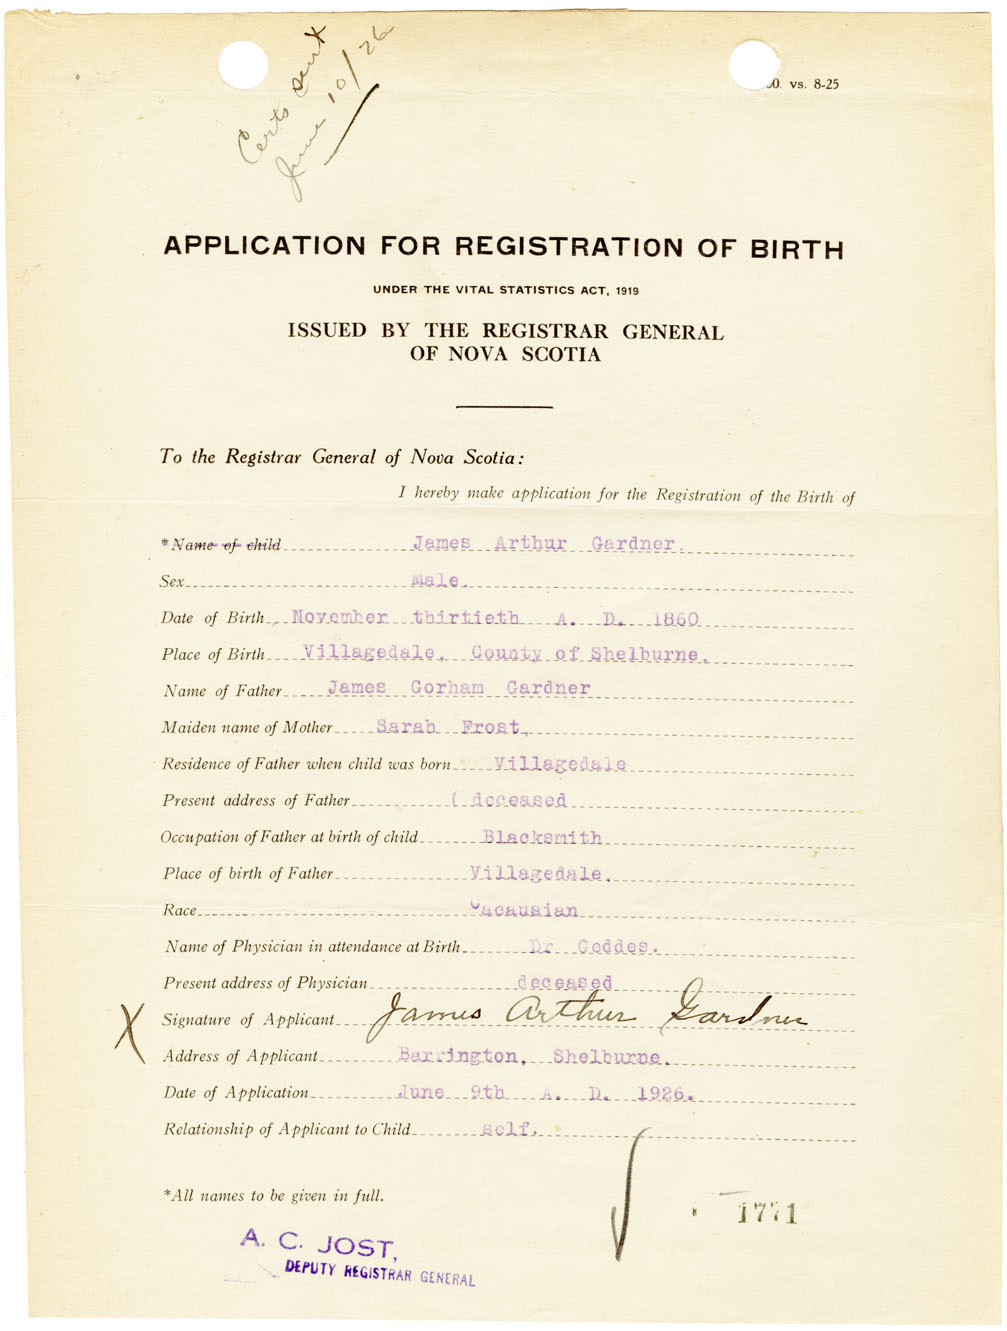 Certs sent
June 10/26
00. vs. 8-25
APPLICATION FOR REGISTRATION OF BIRTH
UNDER THE VITAL STATISTICS ACT, 1919
ISSUED BY THE REGISTRAR GENERAL
OF NOVA SCOTIA
To the Registrar General of Nova Scotia:
I hereby make application for the Registration of the Birth of
*Name of child James Arthur Gardner.
Sex Male.
Date of Birth November thirtieth A. D. 1860
Place of Birth Villagedale, County of Shelburne.
Name of Father James Gorham Gardner
Maiden name of Mother Sarah Frost.
Residence of Father when child was born Villagedale
Present address of Father ( deceased
Occupation of Father at birth of child Blacksmith
Place of birth of Father Villagedale.
Race Cacausian
Name of Physician in attendance at Birth Dr Geddes.
Present address of Physician deceased
X Signature of Applicant James Arthur Gardner
Address of Applicant Barrington, Shelburne.
Date of Application June 9th A. D. 1926.
Relationship of Applicant to Child self.
*All names to be given in full.
1771
A. C. JOST,
DEPUTY REGISTRAR GENERAL